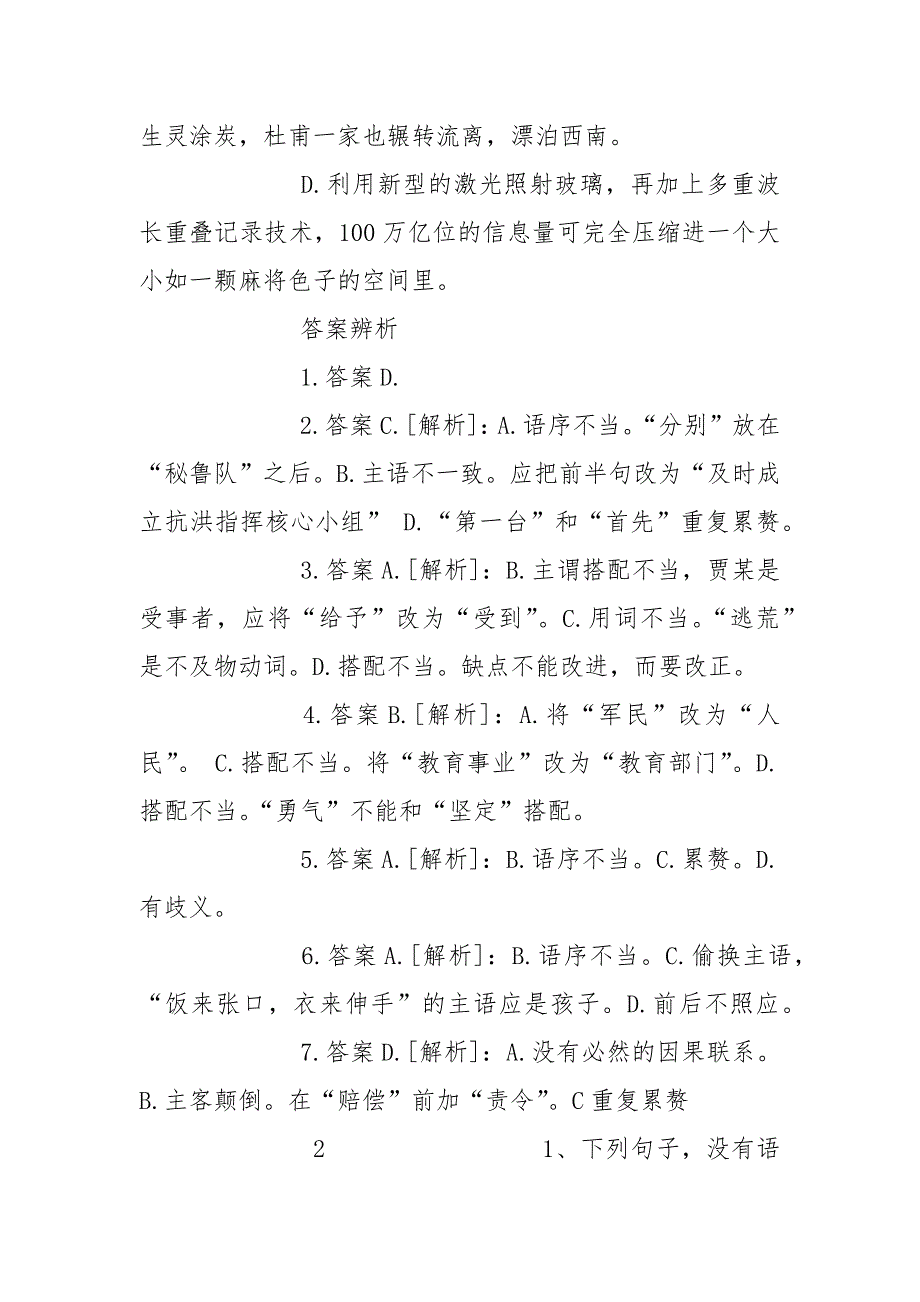 生灵涂炭，杜甫一家也辗转流离，漂泊西南。
D.利用新型的激光照射玻璃，再加上多重波
长重叠记录技术，100 万亿位的信息量可完全压缩进一个大
小如一颗麻将色子的空间里。
答案辨析
1.答案 D.
2.答案 C.[解析]：A.语序不当。“分别”放在
“秘鲁队”之后。B.主语不一致。应把前半句改为“及时成
立抗洪指挥核心小组” D.“第一台”和“首先”重复累赘。
3.答案 A.[解析]：B.主谓搭配不当，贾某是
受事者，应将“给予”改为“受到”。C.用词不当。“逃荒”
是不及物动词。D.搭配不当。缺点不能改进，而要改正。
4.答案 B.[解析]：A.将“军民”改为“人
民”。 C.搭配不当。将“教育事业”改为“教育部门”。D.
搭配不当。“勇气”不能和“坚定”搭配。
5.答案 A.[解析]：B.语序不当。C.累赘。D.
有歧义。
6.答案 A.[解析]：B.语序不当。C.偷换主语，
“饭来张口，衣来伸手”的主语应是孩子。D.前后不照应。
7.答案 D.[解析]：A.没有必然的因果联系。
B.主客颠倒。在“赔偿”前加“责令”。C 重复累赘
2 1、下列句子，没有语